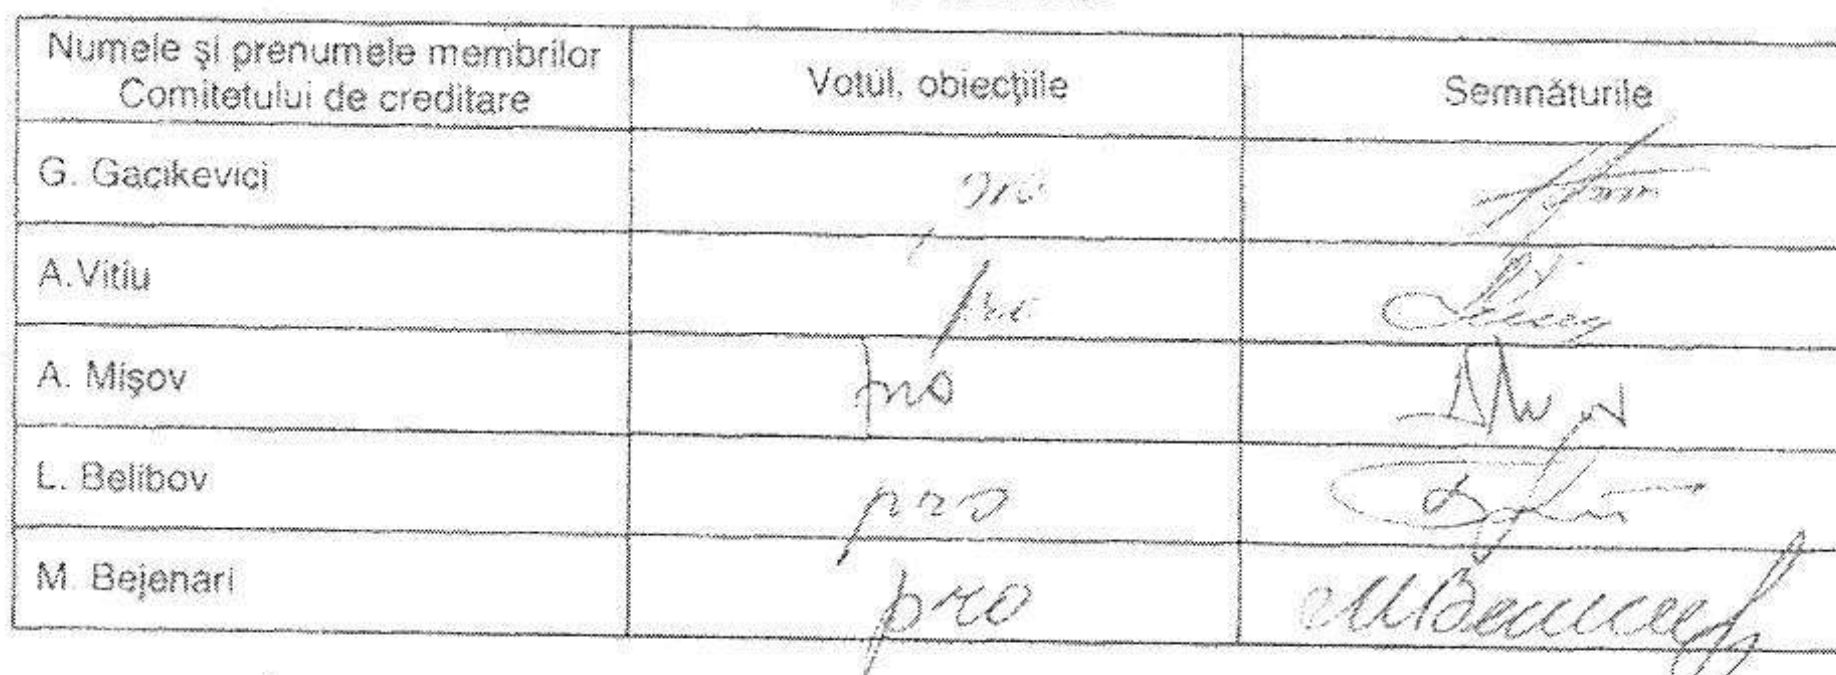 Numele şi prenumele membrilor
Comitetului de creditare
Votul, obiecţiile
Semnăturile
G. Gacikevici
pro
A.Vitiu
pro
A. Mişov
pro
L. Belibov
pro
M. Bejenari
pro